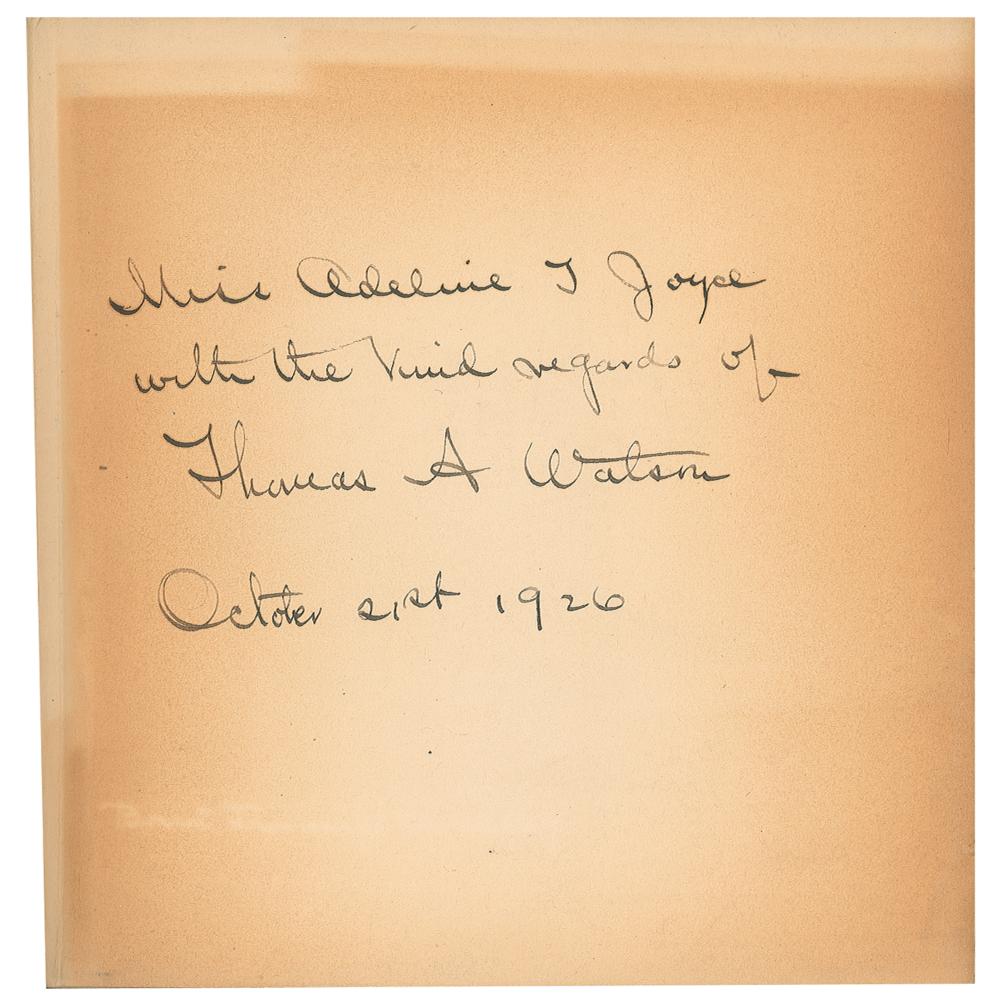 Miss Adeline J Joyce
with the kind regards of
Thomas A Watson
October 21st 1926